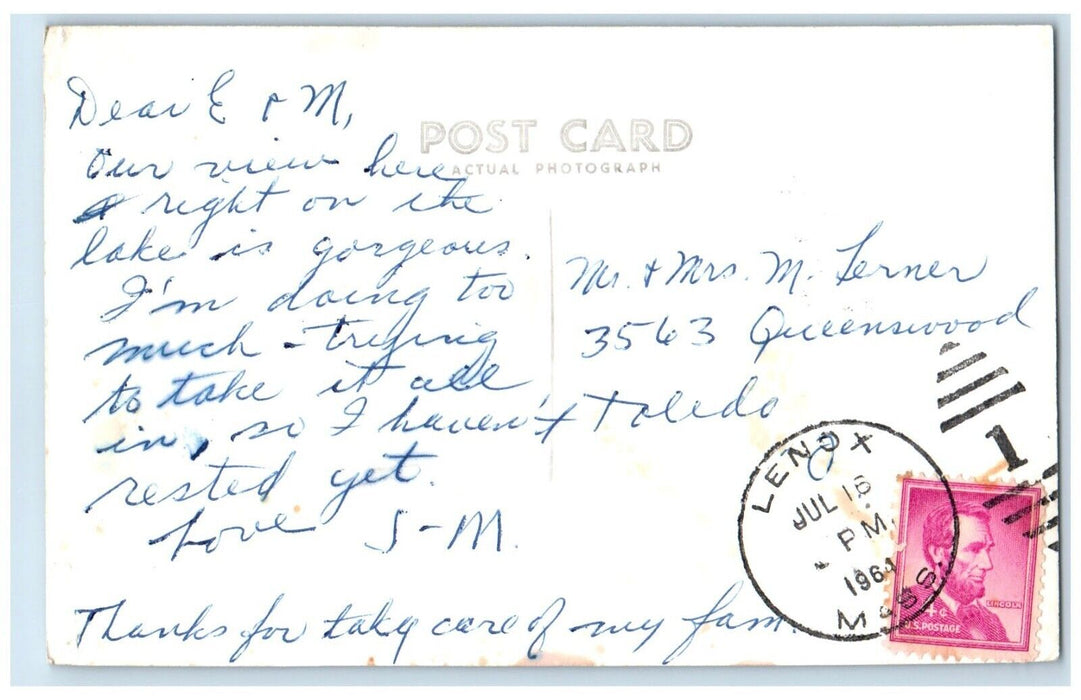 POST CARD
ACTUAL PHOTOGRAPH
Dear E & M,
Our view here
right on the
lake is gorgeous.
I'm doing too
much - trying
to take it all
in, so I haven't
rested yet.
Love S-M.
Thanks for takg care of my fam.
Mr. & Mrs. M. Lerner
3563 Queenswood
Toledo
O
LENOX
JUL 16
PM
1964
MASS.
1
LINCOLN
4¢
U.S. POSTAGE